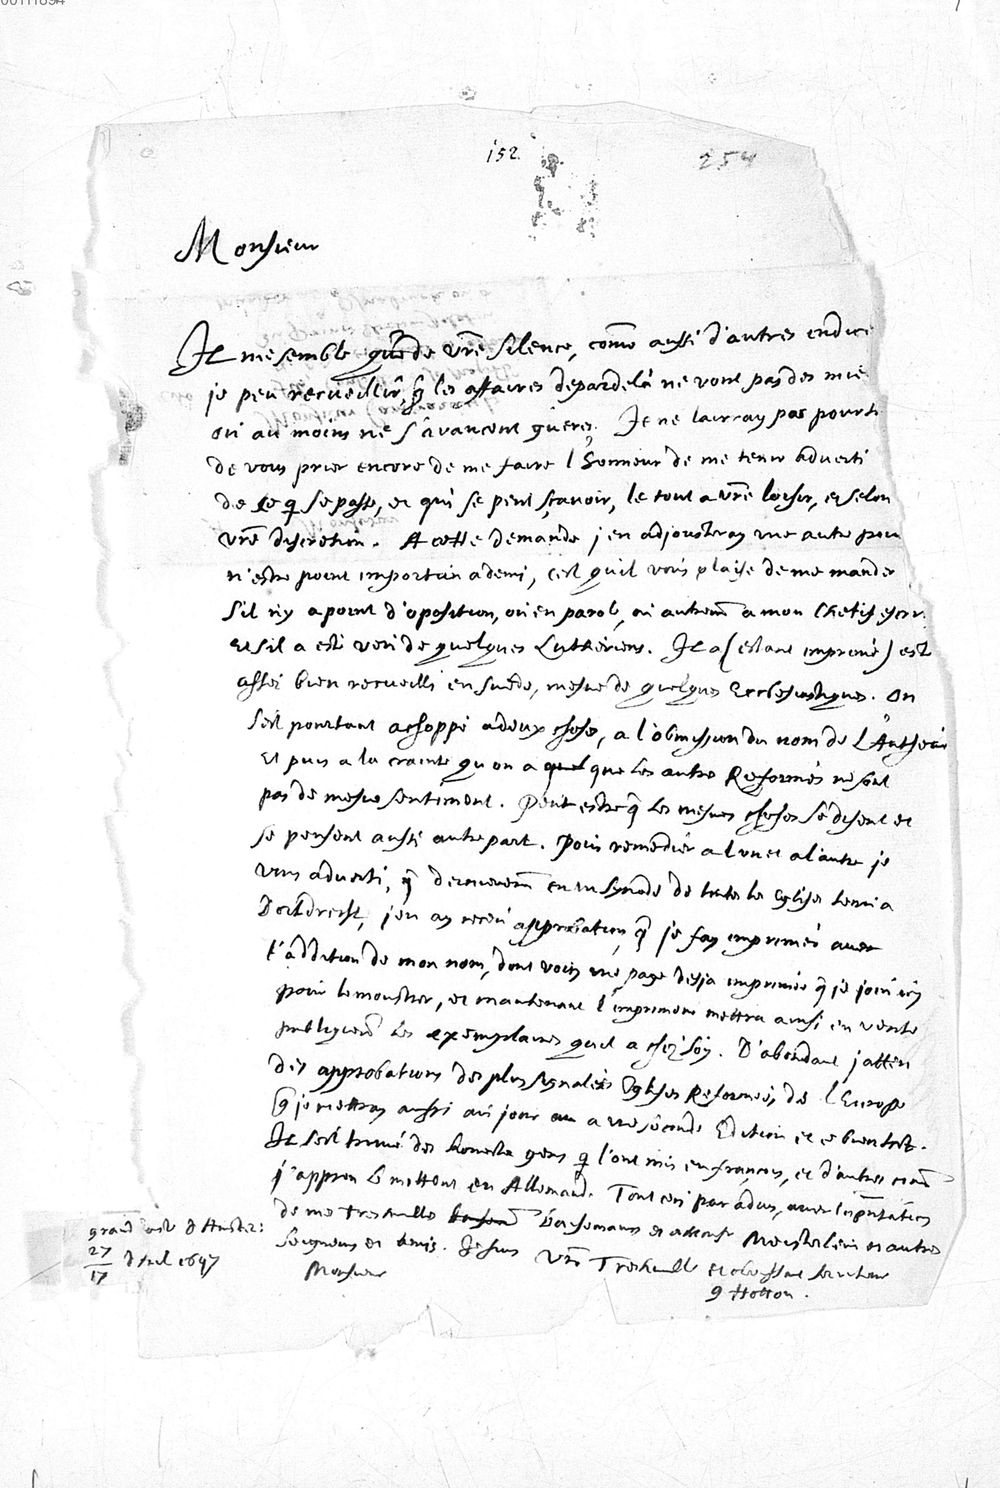 152.
254
Monsieur
Il me semble que de vre silence, come aussi d'autres endice
je peu recueillir, q les affaires depardelà ne vont pas des mie
ou au moins ne s'avancent gueres. Je ne lairray pas pourt
de vous prier encore de me faire l'honneur de me tenir adverti
de ce q se passe, et qui se peut sçavoir, le tout a vre loisir, et selon
vre discretion. A cette demande j'en adjousteray une autre pou
n'estre point importun a demi, c'est qu'il vous plaise de me mander
s'il n'y a point d'oposition, ou en parole, ou autrem a mon chetif escri
et s'il a esté veu de quelques Lutheriens. Il a (estant imprimé) esté
assez bien recueilli en Suede, mesme de quelques Ecclesiastiques. On
s'est pourtant achoppé a deux choses, a l'obmission du nom de l'Autheur
et puis a la crainte qu'on a que les autres Reformés ne sont
pas de mesme sentiment. Peut estre q les mesmes choses se disent et
se pensent aussi autrepart. Pour remedier a l'un et a l'autre je
vous adverti, q dernierem en un synode de toutes les Eglises tenu a
Dordrecht, j'en ay receu approbation, q je fay imprimer avec
l'addition de mon nom, dont voicy une page desja imprimée q je join icy
pour le monstrer, et maintenant l'imprimeur mettra ainsi en vente
publiquem les exemplaires qu'il a chez soy. D'abondant j'atten
des approbations des plus signalées Eglises Reformées de l'Europe
q je mettray aussi au jour a une seconde Edition et ce bien tost.
Il s'est trouvé des honnestes gens q l'ont mis en françois, et d'autres
j'appren le mettent en Allemand. Tout ceci par
de mes treshumbles baisemains et a Meisterlein et autres
Seigneurs et amis. Je suis
Monsieur
Vre Treshumble et obeissant serviteur
g Hotton.
grand haste d'Amster:
27
17 d'Avril 1647